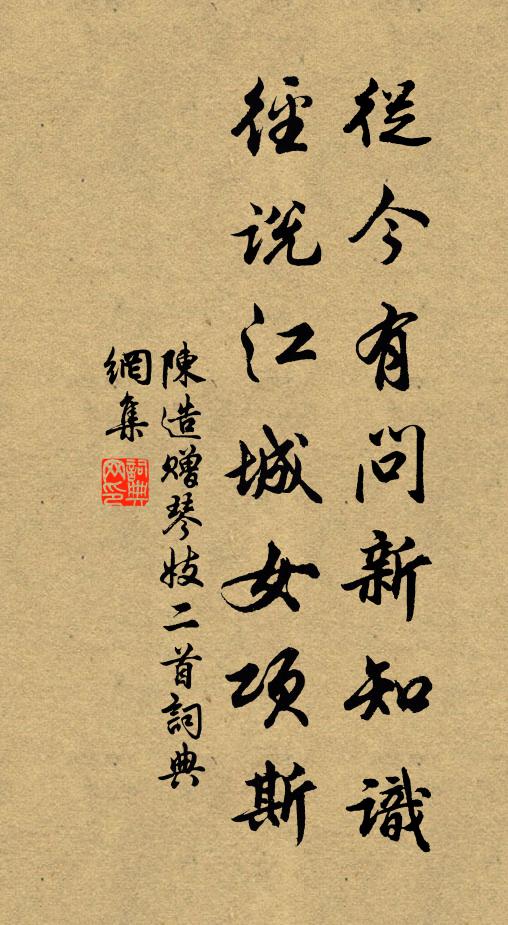 從今有問新知識
徑說江城女項斯
陳造贈琴妓二首詞典
網集
詞典網印